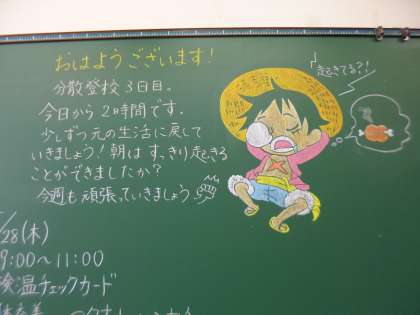 おはようございます!
分散登校3日目。
今日から2時間です.
少しずつ元の生活に戻して
いきましょう!朝はすっきり起きる
ことができましたか?
今週も頑張っていきましょう
起きてる?!
/28(木)
9:00〜11:00
検温チェックカード